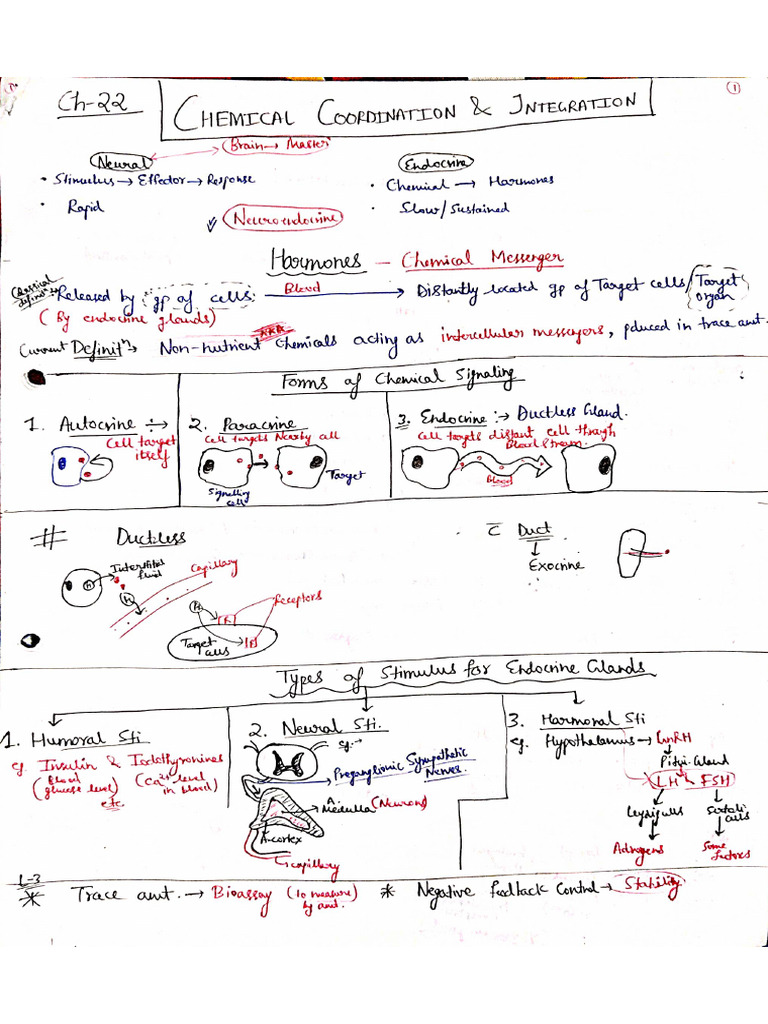 ①
①
Ch-22
CHEMICAL COORDINATION & INTEGRATION
Brain → Master
Neural
Endocrine
• Stimulus → Effector → Response
• Chemical → Hormones
• Rapid
• Slow/Sustained
Neuroendocrine
Hormones - Chemical Messenger
Classical definitn :-
Released by gp of cells Blood → Distantly located gp of Target cells/Target organ
(By endocrine glands)
Current Definitn → Non-nutrient chemicals acting as intercellular messengers, pduced in trace amt.
Forms of Chemical Signaling
1. Autocrine :→
Cell target itself
2. Paracrine
Cell targets Nearby cell
Signalling cells
Target
3. Endocrine :→ Ductless Gland.
Cell targts distant cell through Blood stream.
Blood
# Ductless
Interstitial fluid
Capillary
h
h
h
Receptors
R
R
Target cells
c̄ Duct
Exocrine
Types of Stimulus for Endocrine Glands
1. Humoral Sti
eg. Insulin & Iodothyronines
Blood (glucose level)
(Ca2+ level in blood)
etc
2. Neural Sti.
eg.→
Preganglionic Sympathetic Nerves.
A. Medulla (Neurons)
A-cortex
capillary
3. Harmonal Sti
eg. Hypothalamus → GnRH
Pitui. Gland
LH FSH
Leydig cells
Sertoli cells
Adrogens
Some factors
L-3
* Trace amt. → Bioassay (to measure) by amt.
* Negative feedback control → Stability